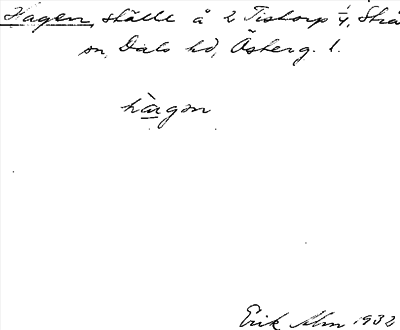 Hagen, ställe å 2 Tistorp ¼, Strå
sn, Dals hd, Österg. l.
hàgən
Erik Alm 1932